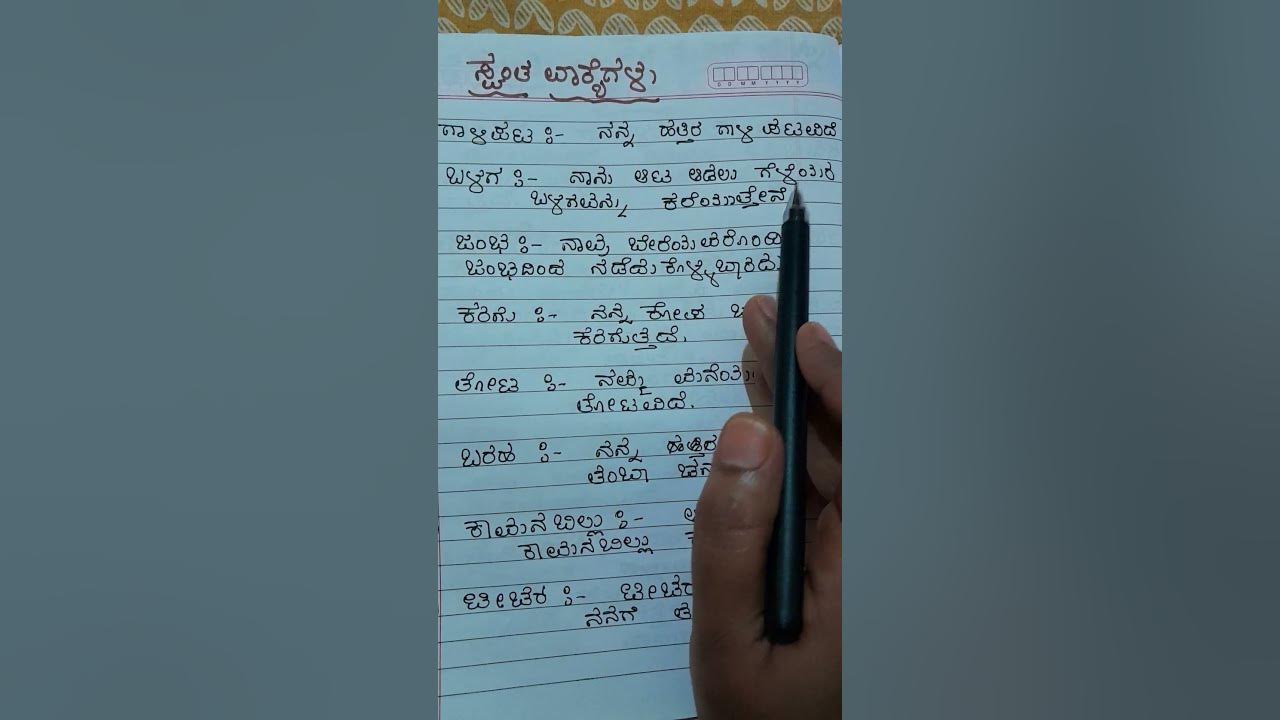 ಸ್ವಂತ ವಾಕ್ಯೆಗಳು
D D M M Y Y Y Y
ಗಾಳಿಪಟ :- ನನ್ನ ಹತ್ತಿರ ಗಾಳಿ ಪಟವಿದೆ
ಬಳಗ :- ನಾನು ಆಟ ಆಡಲು ಗೆಳೆಯರ
ಬಳಗವನ್ನು ಕರೆಯುತ್ತೇನೆ
ಜಂಭ :- ನಾವು
ಜಂಭದಿಂದ ನಡೆದು ಕೊಳ್ಳಬಾರದು
ಕೆರಗು :- ನನ್ನ ಕೋಪ
ಕೆರಗುತ್ತದೆ.
ತೋಟ :- ನಮ್ಮ ಮನೆಯ
ತೋಟವಿದೆ.
ಬರಹ :- ನನ್ನ ಹತ್ತಿರ
ತುಂಬಾ
ಕಾಮನಬಿಲ್ಲು :-
ಕಾಮನಬಿಲ್ಲು
ಟೀಚರ :- ಟೀಚರ
ನನಗೆ